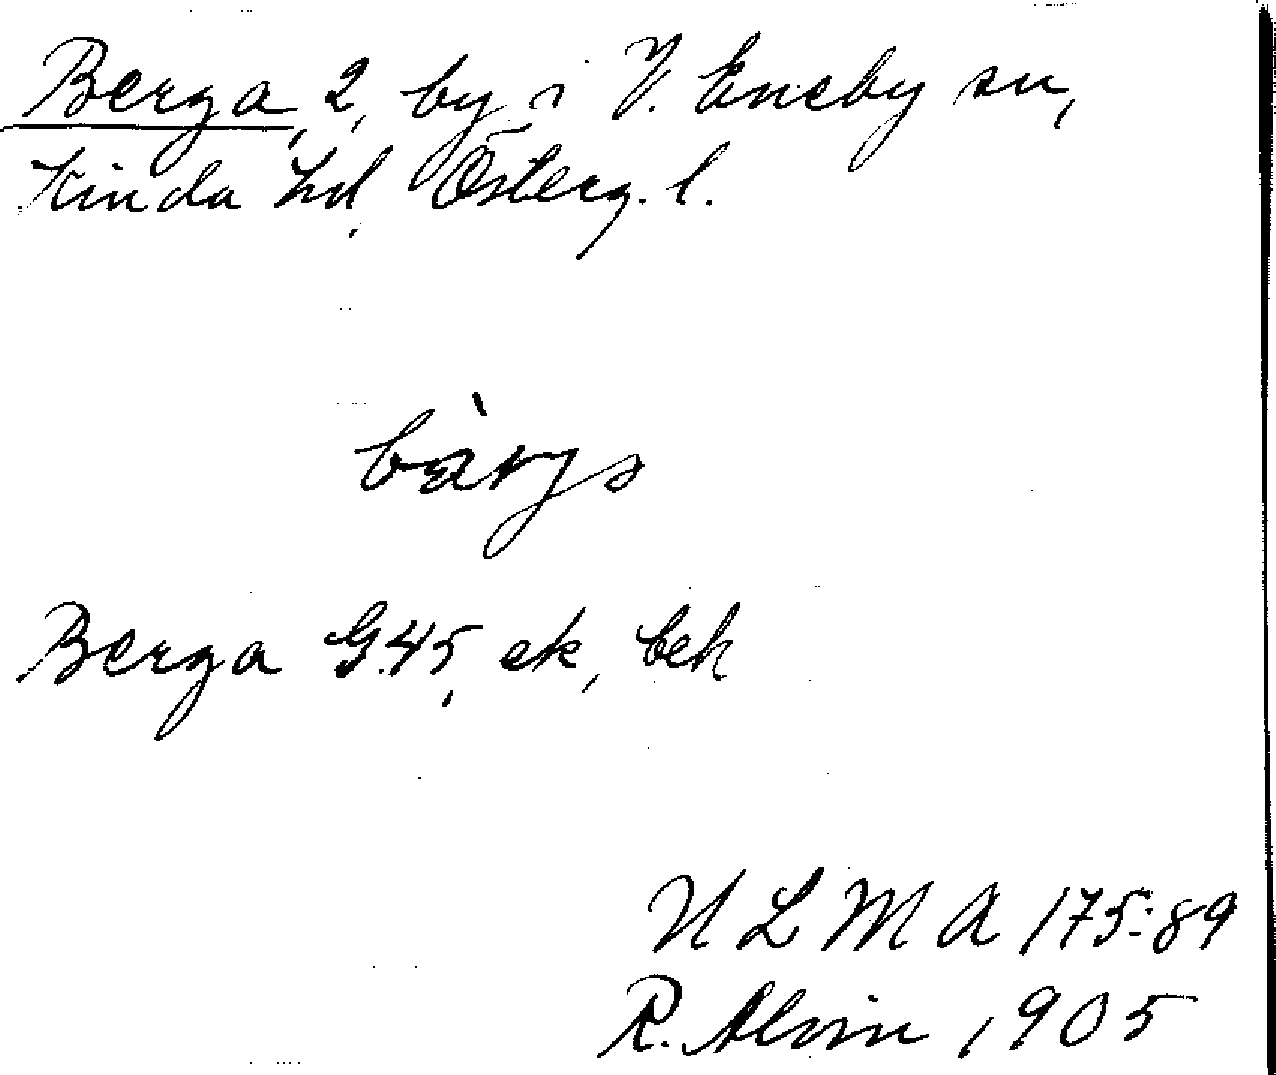 Berga, 2, by i V. Eneby sn,
Kinda hd, Österg. l.
bàrjs
Berga G.45, ek, beh
ULMA 175:89
R. Alvin, 1905